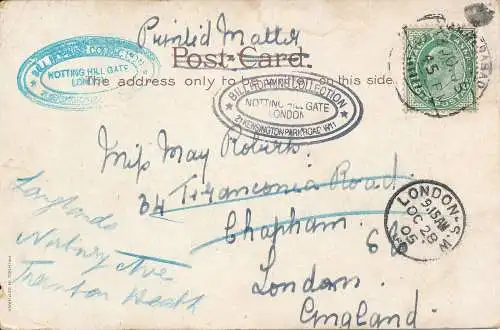 Printed Matter
Post Card.
The address only to be written on this side.
BILL HOPKINS COLLECTION
NOTTING HILL GATE
LONDON
BILL HOPKINS COLLECTION
NOTTING HILL GATE
LONDON
21 KENSINGTON PARK ROAD W11
Miss May Roberts.
34 Franconia Road
Clapham.
S W
London.
England.
Langlands
Norbury Ave
Thornton Heath
LONDON. S.W.
9.15 AM
OC 28
05